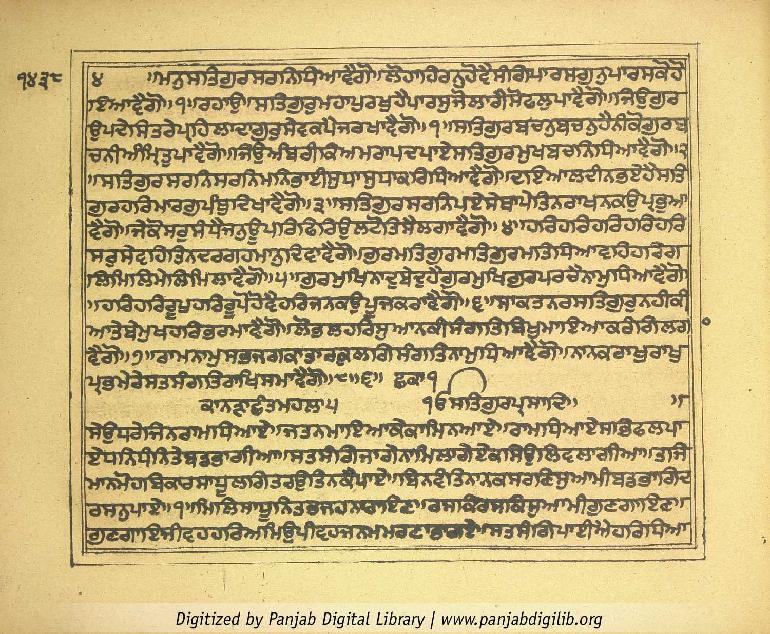 ੧੪੩੮
੪ ॥ਮਨੁਸਤਿਗੁਰਸਰਨਿਧਿਆਵੈਗੋ॥ਲੋਹਾਹਿਰਨੁਹੋਵੈਸੰਗਿਪਾਰਸਗੁਨੁਪਾਰਸਕੋਹੋ
ਇਆਵੈਗੋ॥੧॥ਰਹਾਉ॥ਸਤਿਗੁਰੁਮਹਾਪੁਰਖੁਹੈਪਾਰਸੁਜੋਲਾਗੈਸੋਫਲੁਪਾਵੈਗੋ॥ਜਿਉਗੁਰ
ਉਪਦੇਸਿਤਰੇਪ੍ਰਹਿਲਾਦਾਗੁਰੁਸੇਵਕਪੈਜਰਖਾਵੈਗੋ॥੧॥ਸਤਿਗੁਰਬਚਨੁਬਚਨੁਹੈਨੀਕੋਗੁਰਬ
ਚਨੀਅੰਮ੍ਰਿਤੁਪਾਵੈਗੋ॥ਜਿਉਅੰਬਰੀਕਿਅਮਰਾਪਦਪਾਏਸਤਿਗੁਰਮੁਖਬਚਨਿਧਿਆਵੈਗੋ॥੨
॥ਸਤਿਗੁਰਸਰਨਿਸਰਨਿਮਨਿਭਾਈਸੁਧਾਸੁਧਾਕਰਿਧਿਆਵੈਗੋ॥ਦਇਆਲਦੀਨਭਏਹੈਸਤਿ
ਗੁਰਹਰਿਮਾਰਗੁਪੰਥੁਦਿਖਾਵੈਗੋ॥੩॥ਸਤਿਗੁਰਸਰਨਿਪਏਸੇਥਾਪੇਤਿਨਰਾਖਨਕਉਪ੍ਰਭੁਆ
ਵੈਗੋ॥ਜੇਕੋਸਰੁਸੰਧੈਜਨਊਪਰਿਫਿਰਿਉਲਟੋਤਿਸੈਲਗਾਵੈਗੋ॥੪॥ਹਰਿਹਰਿਹਰਿਹਰਿਹਰਿ
ਸਰੁਸੇਵਹਿਤਿਨਦਰਗਹਮਾਨੁਦਿਵਾਵੈਗੋ॥ਗੁਰਮਤਿਗੁਰਮਤਿਗੁਰਮਤਿਧਿਆਵਹਿਹਰਿਗ
ਲਿਮਿਲਿਮੇਲਿਮਿਲਾਵੈਗੋ॥੫॥ਗੁਰਮੁਖਿਨਾਦੁਬੇਦੁਹੈਗੁਰਮੁਖਿਗੁਰਪਰਚੈਨਾਮੁਧਿਆਵੈਗੋ
॥ਹਰਿਹਰਿਰੂਪੁਹਰਿਰੂਪੋਹੋਵੈਹਰਿਜਨਕਉਪੂਜਕਰਾਵੈਗੋ॥੬॥ਸਾਕਤਨਰਸਤਿਗੁਰੁਨਹੀਕੀ
ਆਤੇਬੇਮੁਖਹਰਿਭਰਮਾਵੈਗੋ॥ਲੋਭਲਹਰਿਸੁਆਨਕੀਸੰਗਤਿਬਿਖੁਮਾਇਆਕਰੰਗਿਲਗਾ
ਵੈਗੋ॥੭॥ਰਾਮਨਾਮੁਸਭਜਗਕਾਤਾਰਕੁਲਗਿਸੰਗਤਿਨਾਮੁਧਿਆਵੈਗੋ॥ਨਾਨਕਰਾਖੁਰਾਖੁ
ਪ੍ਰਭਮੇਰੇਸਤਸੰਗਤਿਰਾਖਿਸਮਾਵੈਗੋ॥੮॥੬॥ ਛਕਾ੧
ਕਾਨੜਾਛੰਤਮਹਲਾ੫ ੴਸਤਿਗੁਰਪ੍ਰਸਾਦਿ॥
ਸੇਉਧਰੇਜਿਨਰਾਮਧਿਆਏ॥ਜਤਨਮਾਇਆਕੇਕਾਮਿਨਆਏ॥ਰਾਮਧਿਆਏਸਭਿਫਲਪਾ
ਏਧਨਿਧੰਨਿਤੇਬਡਭਾਗੀਆ॥ਸਤਸੰਗਿਜਾਗੇਨਾਮਿਲਾਗੇਏਕਸਿਉਲਿਵਲਾਗੀਆ॥ਤਜਿ
ਮਾਨਮੋਹਬਿਕਾਰਸਾਧੂਲਗਿਤਰਉਤਿਨਕੈਪਾਏ॥ਬਿਨਵੰਤਿਨਾਨਕਸਰਣਿਸੁਆਮੀਬਡਭਾਗਿਦ
ਰਸਨੁਪਾਏ॥੧॥ਮਿਲਿਸਾਧੂਨਿਤਭਜਹਨਾਰਾਇਣ॥ਰਸਕਿਰਸਕਿਸੁਆਮੀਗੁਣਗਾਇਣ॥
ਗੁਣਗਾਇਜੀਵਹਹਰਿਅਮਿਉਪੀਵਹਜਨਮਮਰਣਾਭਾਗਏ॥ਸਤਸੰਗਿਪਾਈਐਹਰਿਧਿਆ
Digitized by Panjab Digital Library | www.panjabdigilib.org